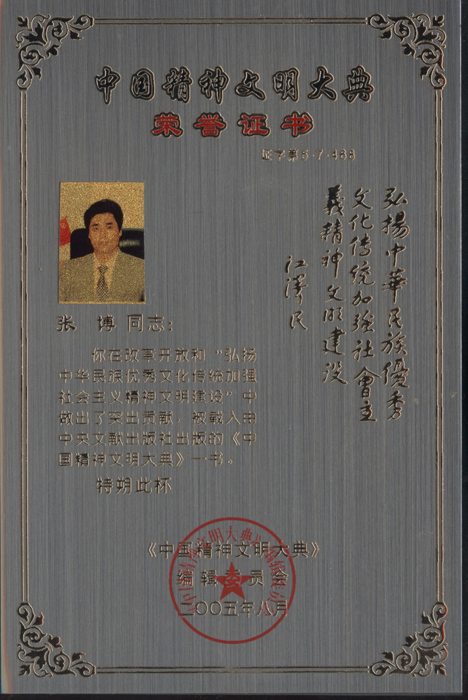 中国精神文明大典
荣誉证书
弘揚中華民族優秀
文化传统加強社會主
義精神文明建设
江澤民
张 博 同志：
你在改革开放和“弘扬
中华民族优秀文化传统加强
社会主义精神文明建设”中
做出了突出贡献，被载入由
中央文献出版社出版的《中
国精神文明大典》一书。
特朔此杯
《中国精神文明大典》
编辑委员会
二〇〇五年八月